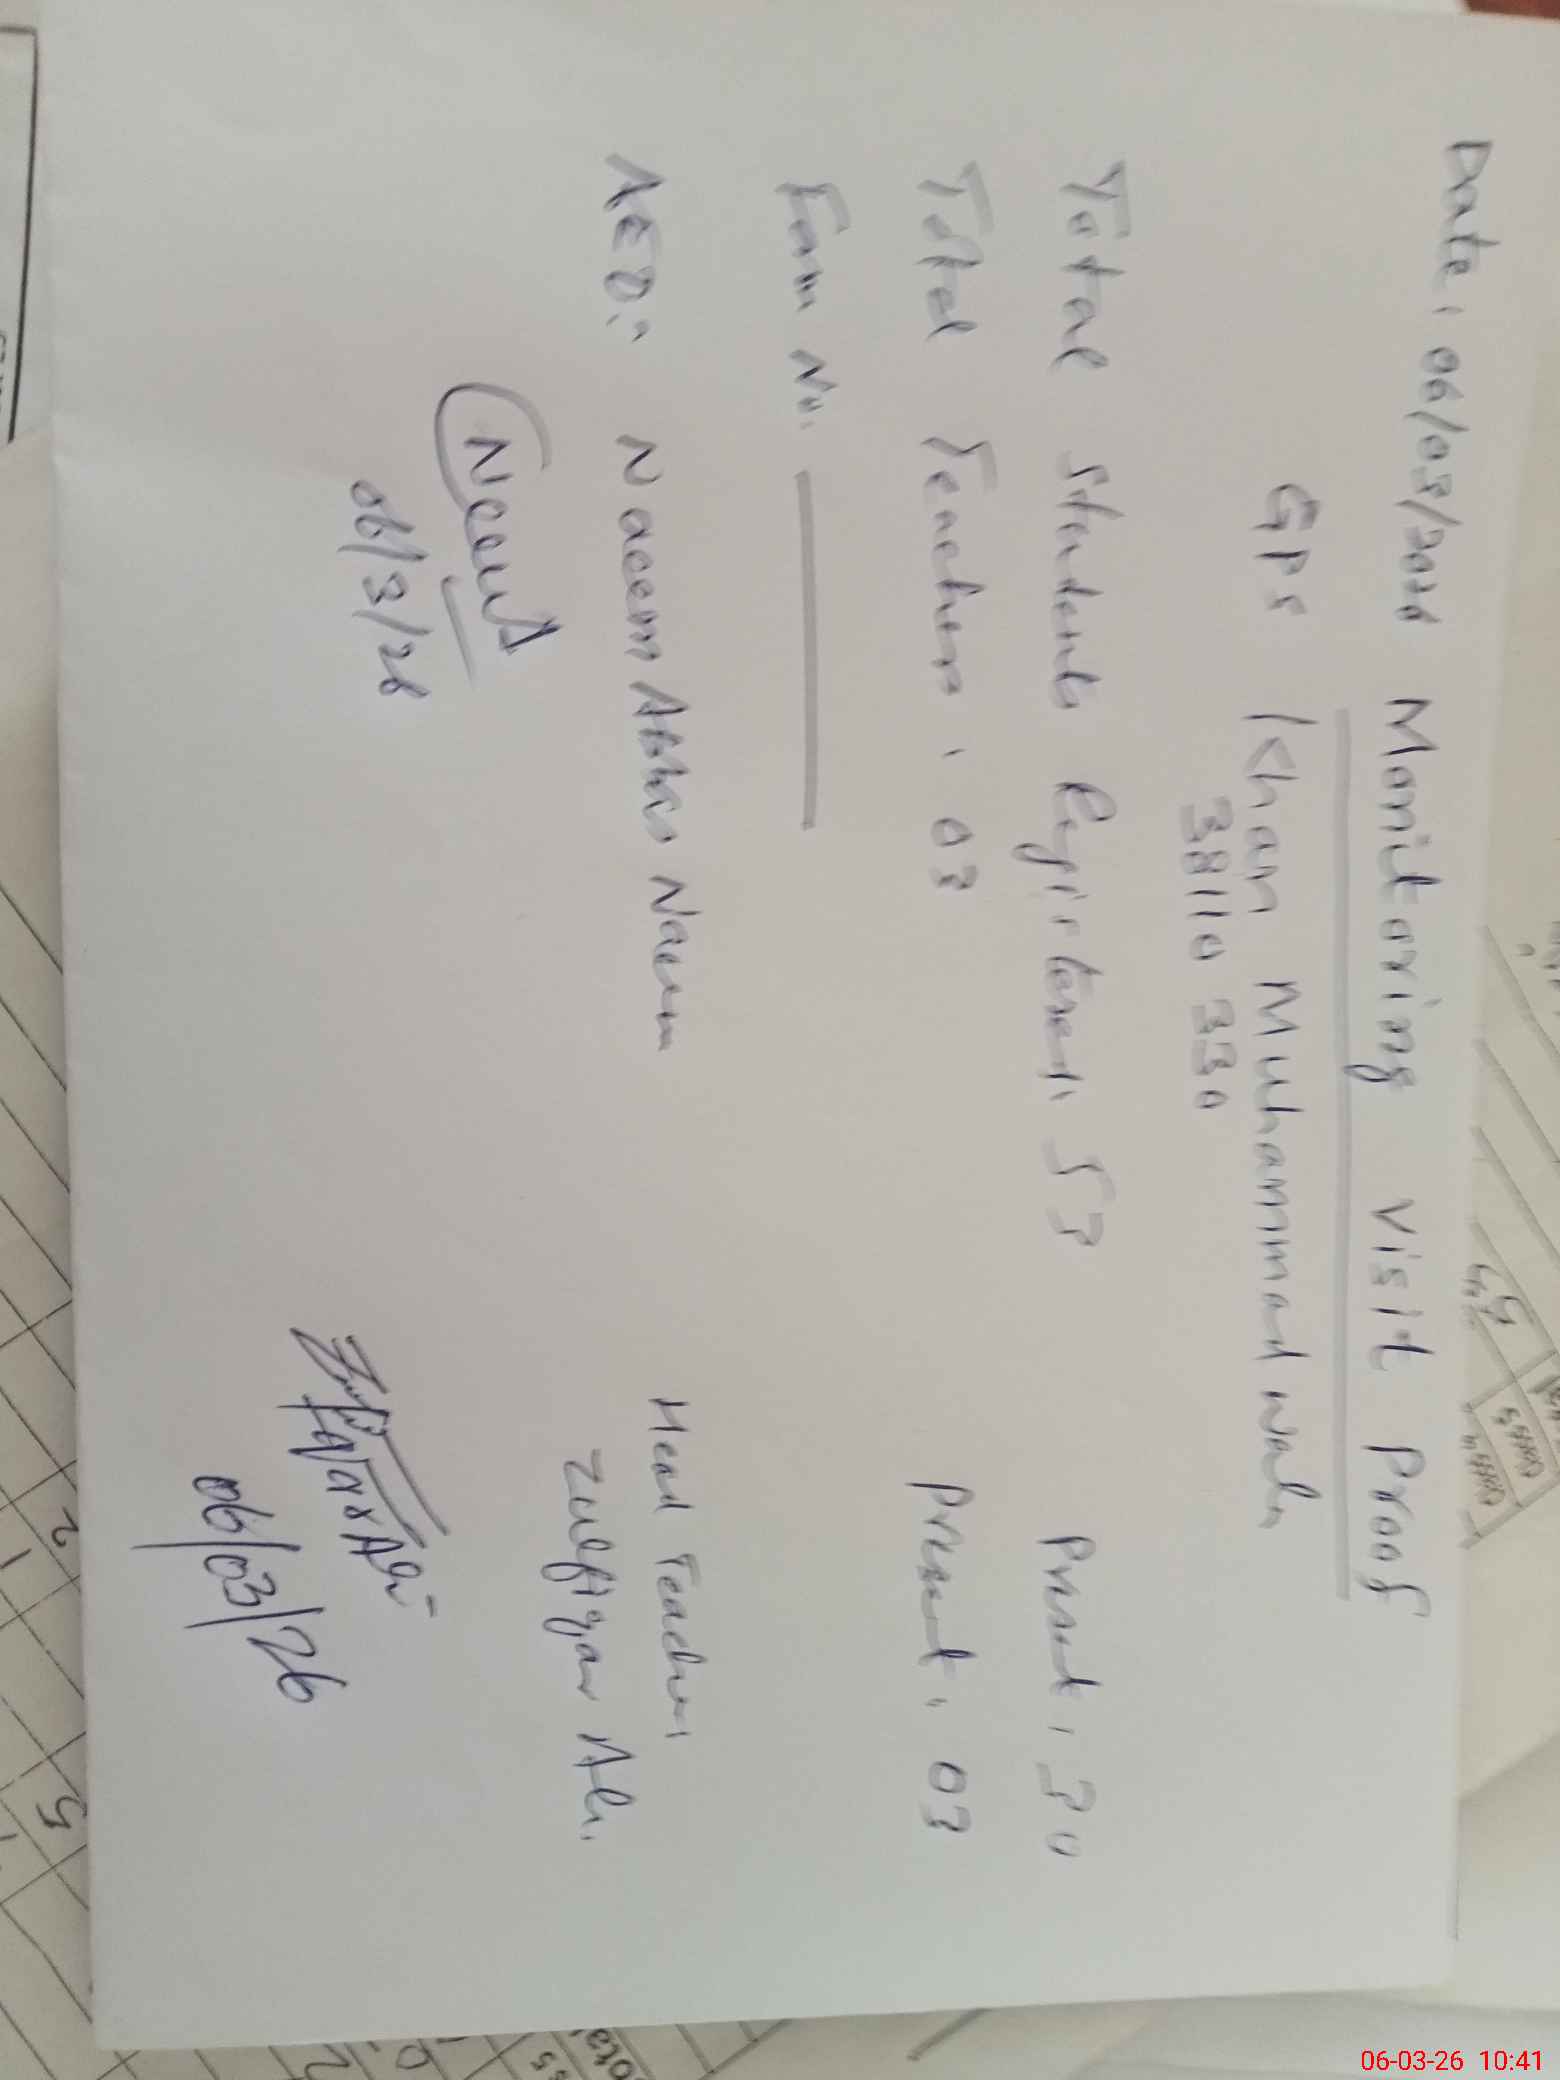 Date: 06/03/2026 Monitoring Visit Proof
GPS Khan Muhammad wala
38110 330
Total Students Registered: 53 Present: 30
Total Teachers: 03 Present: 03
Fam No.
AEO: Naeem Abbas Naeem
Head Teacher
Zulfiqar Ali
06/3/26
06/03/26
2
1
5
06-03-26 10:41